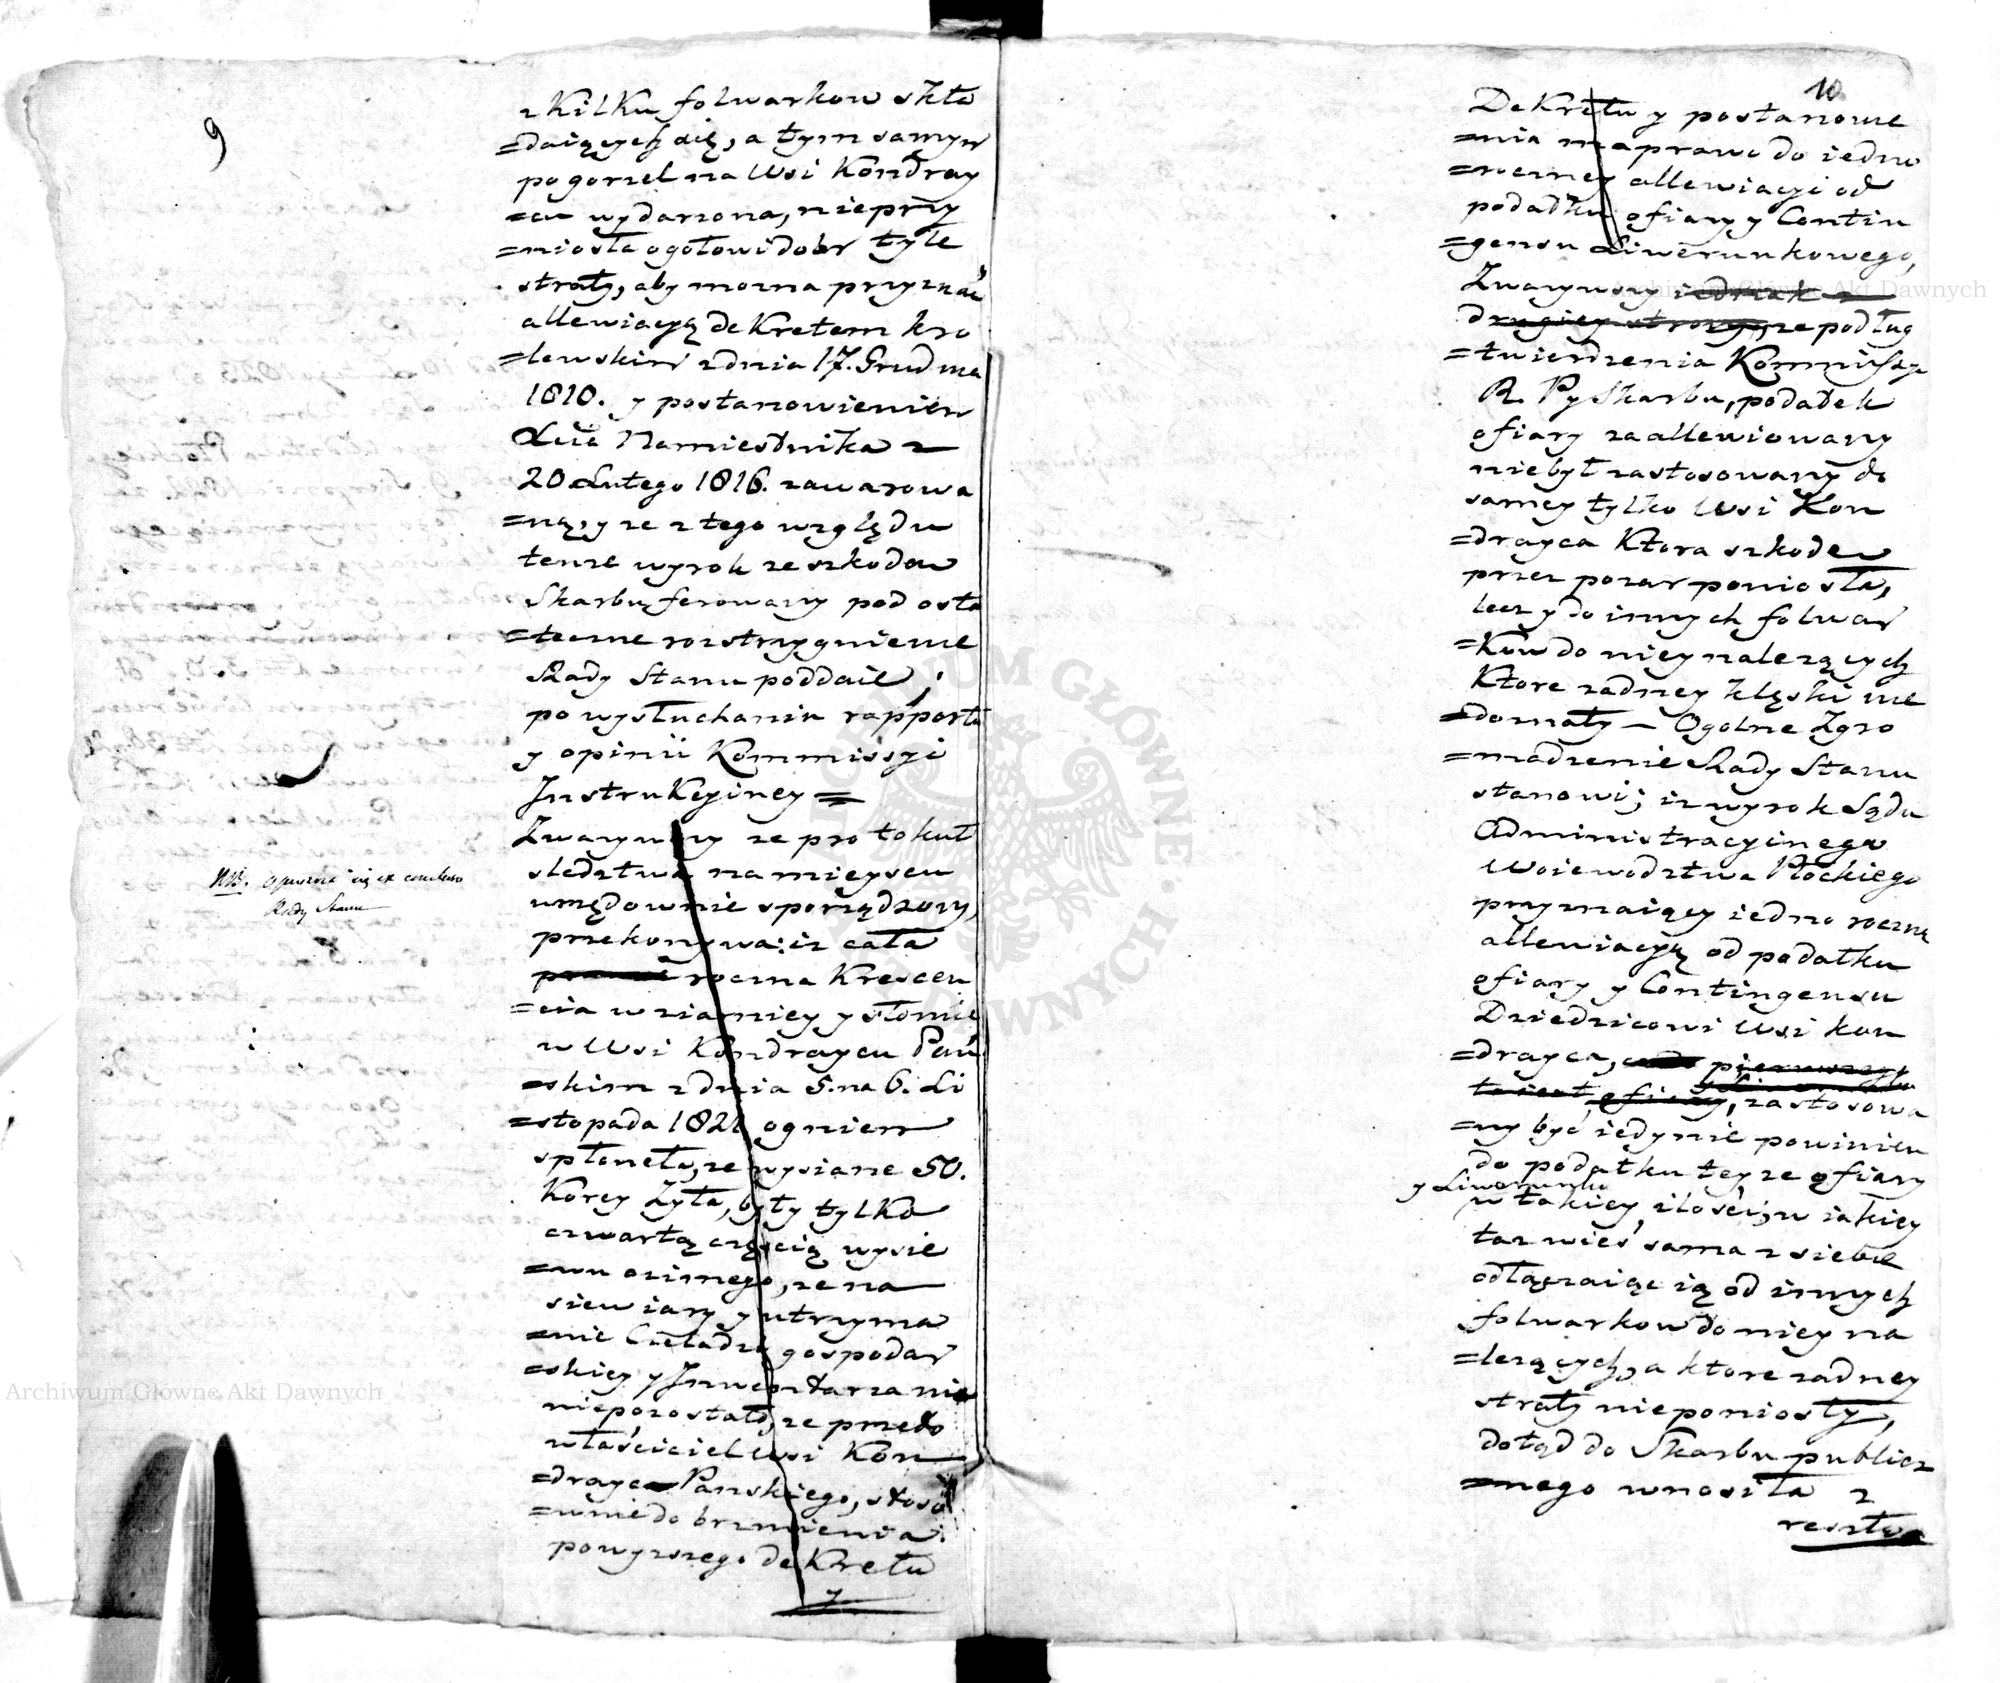 9
z Kilku folwarkow skła
=daiących się, a tym samym
pogorzel na Wsi Kondray
=cu wydarzona, nieprzy
=niosła ogołowi dobr tyle
straty, aby mozna przyznać
allewiacyą deKretem kro
=lewskim z dnia 17. Grudnia
1810. y postanowieniem
Xcia Namiestnika z
20 Lutego 1816. zawarowa
=ną, y ze z tego względu
tenze wyrok ze szkodą
Skarbu ferowany pod osta
=teczne rozstrzygnienie
Rady Stanu poddaie;
po wysłuchaniu rapportu
y opinii Kommissyi
InstruKcyiney =
Zwazywszy ze protokuł
sledztwa na mieyscu
urzędownie sporządzony,
przekonywa: iz cała
prawie roczna Krescen
=cia w ziarniey y słomie
w Wsi Kondraycu Pań
=skim z dnia 5. na 6. Li
=stopada 1821 ogniem
spłoneła, ze wysiane 50.
Korcy Zyta, były tylko
czwartą częścią wysie
=wu ozimego, ze na
siew iary y utrzyma
=nie Czeladzi gospodar
=skiey y Inwentarza nic
niepozostało, ze przeto
właściciel Wsi Kon
=drayca Panskiego, stoso
=wnie do brzmienia
powyzszego deKretu
y
NB. opuszcza się ex concluso
Rady Stanu
10
DeKretu y postanowie
=nia ma prawo do iedno
=roczney allewiacyi od
podatku ofiary y Contin
=gensu Liwerunkowego,
Zwazywszy iednak z
drugiey strony, ze podług
=twierdzenia Kommissyi
R. P y Skarbu, podatek
ofiary zaallewiowany
niebył zastosowany do
samey tylko Wsi Kon
=drayca Ktora szkodę
przez pozar poniosła,
lecz y do innych folwar
=Kow do niey nalezących
Ktore zadney klęski nie
=doznały — Ogolne Zgro
=madzenie Rady Stanu
stanowi; iz wyrok Sądu
Administracyinego
Woiewodztwa Płockiego
przyznaiący iedno roczną
allewiacyą od podatku
ofiary y Contingensu
Dziedzicowi Wsi kon
=drayca, pierwszy
to iest ofiary, zastosowa
=ny być iedynie powinien
do podatku teyze ofiary
y Liwerunku
w takiey ilości, w iakiey
taz wieś sama z siebie
odłączaiąc ią od innych
folwarkow do niey na
=lezących, a ktore zadney
straty nieponiosły,
dotąd do Skarbu publicz
=nego wnosiła z
resztą
Archiwum Główne Akt Dawnych
Archiwum Główne Akt Dawnych
ARCHIWUM GŁÓWNE AKT DAWNYCH